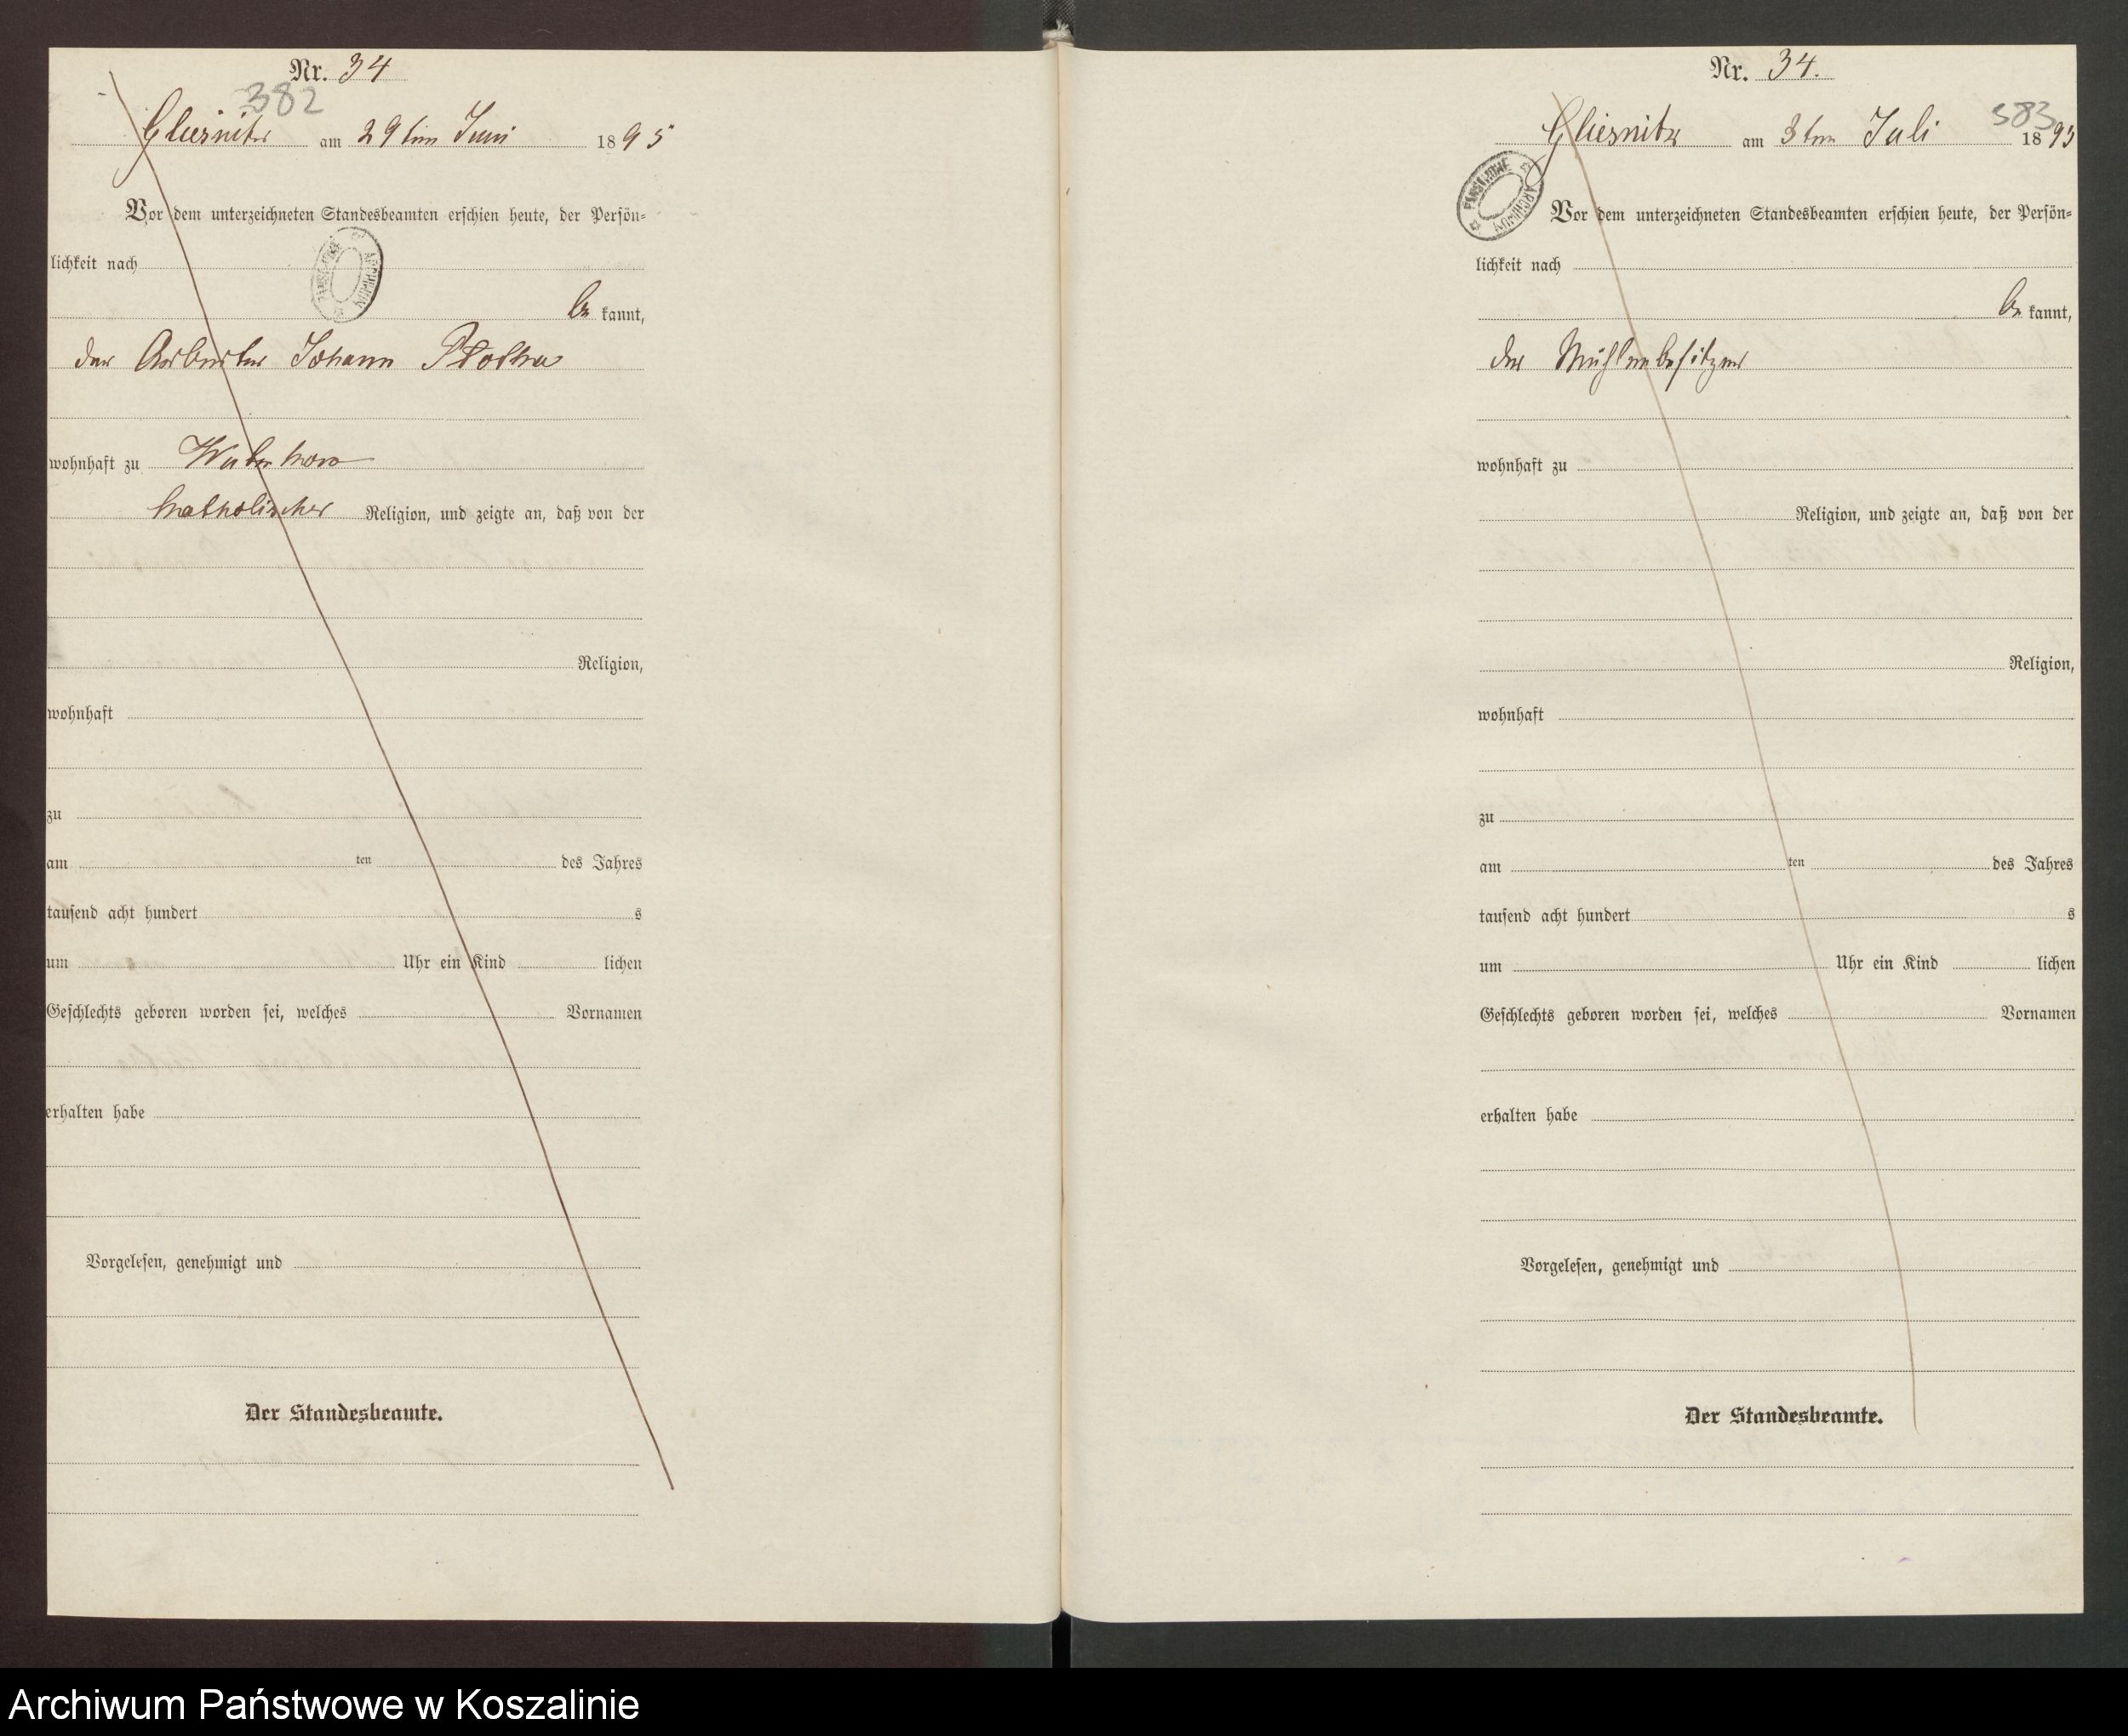 Nr. 34
382
Gliesnitz am 29ten Juni 1895
Vor dem unterzeichneten Standesbeamten erschien heute, der Persön-
lichkeit nach
PAŃSTWOWE ARCHIWUM
be kannt,
der Arbeiter Johann
wohnhaft zu
katholischer Religion, und zeigte an, daß von der
Religion,
wohnhaft
zu
am ten des Jahres
tausend acht hundert s
um Uhr ein Kind lichen
Geschlechts geboren worden sei, welches Vornamen
erhalten habe
Vorgelesen, genehmigt und
Der Standesbeamte.
Nr. 34.
383
Gliesnitz am 3ten Juli 1895
PAŃSTWOWE ARCHIWUM
Vor dem unterzeichneten Standesbeamten erschien heute, der Persön-
lichkeit nach
be kannt,
der Mühlenbesitzer
wohnhaft zu
Religion, und zeigte an, daß von der
Religion,
wohnhaft
zu
am ten des Jahres
tausend acht hundert s
um Uhr ein Kind lichen
Geschlechts geboren worden sei, welches Vornamen
erhalten habe
Vorgelesen, genehmigt und
Der Standesbeamte.
Archiwum Państwowe w Koszalinie